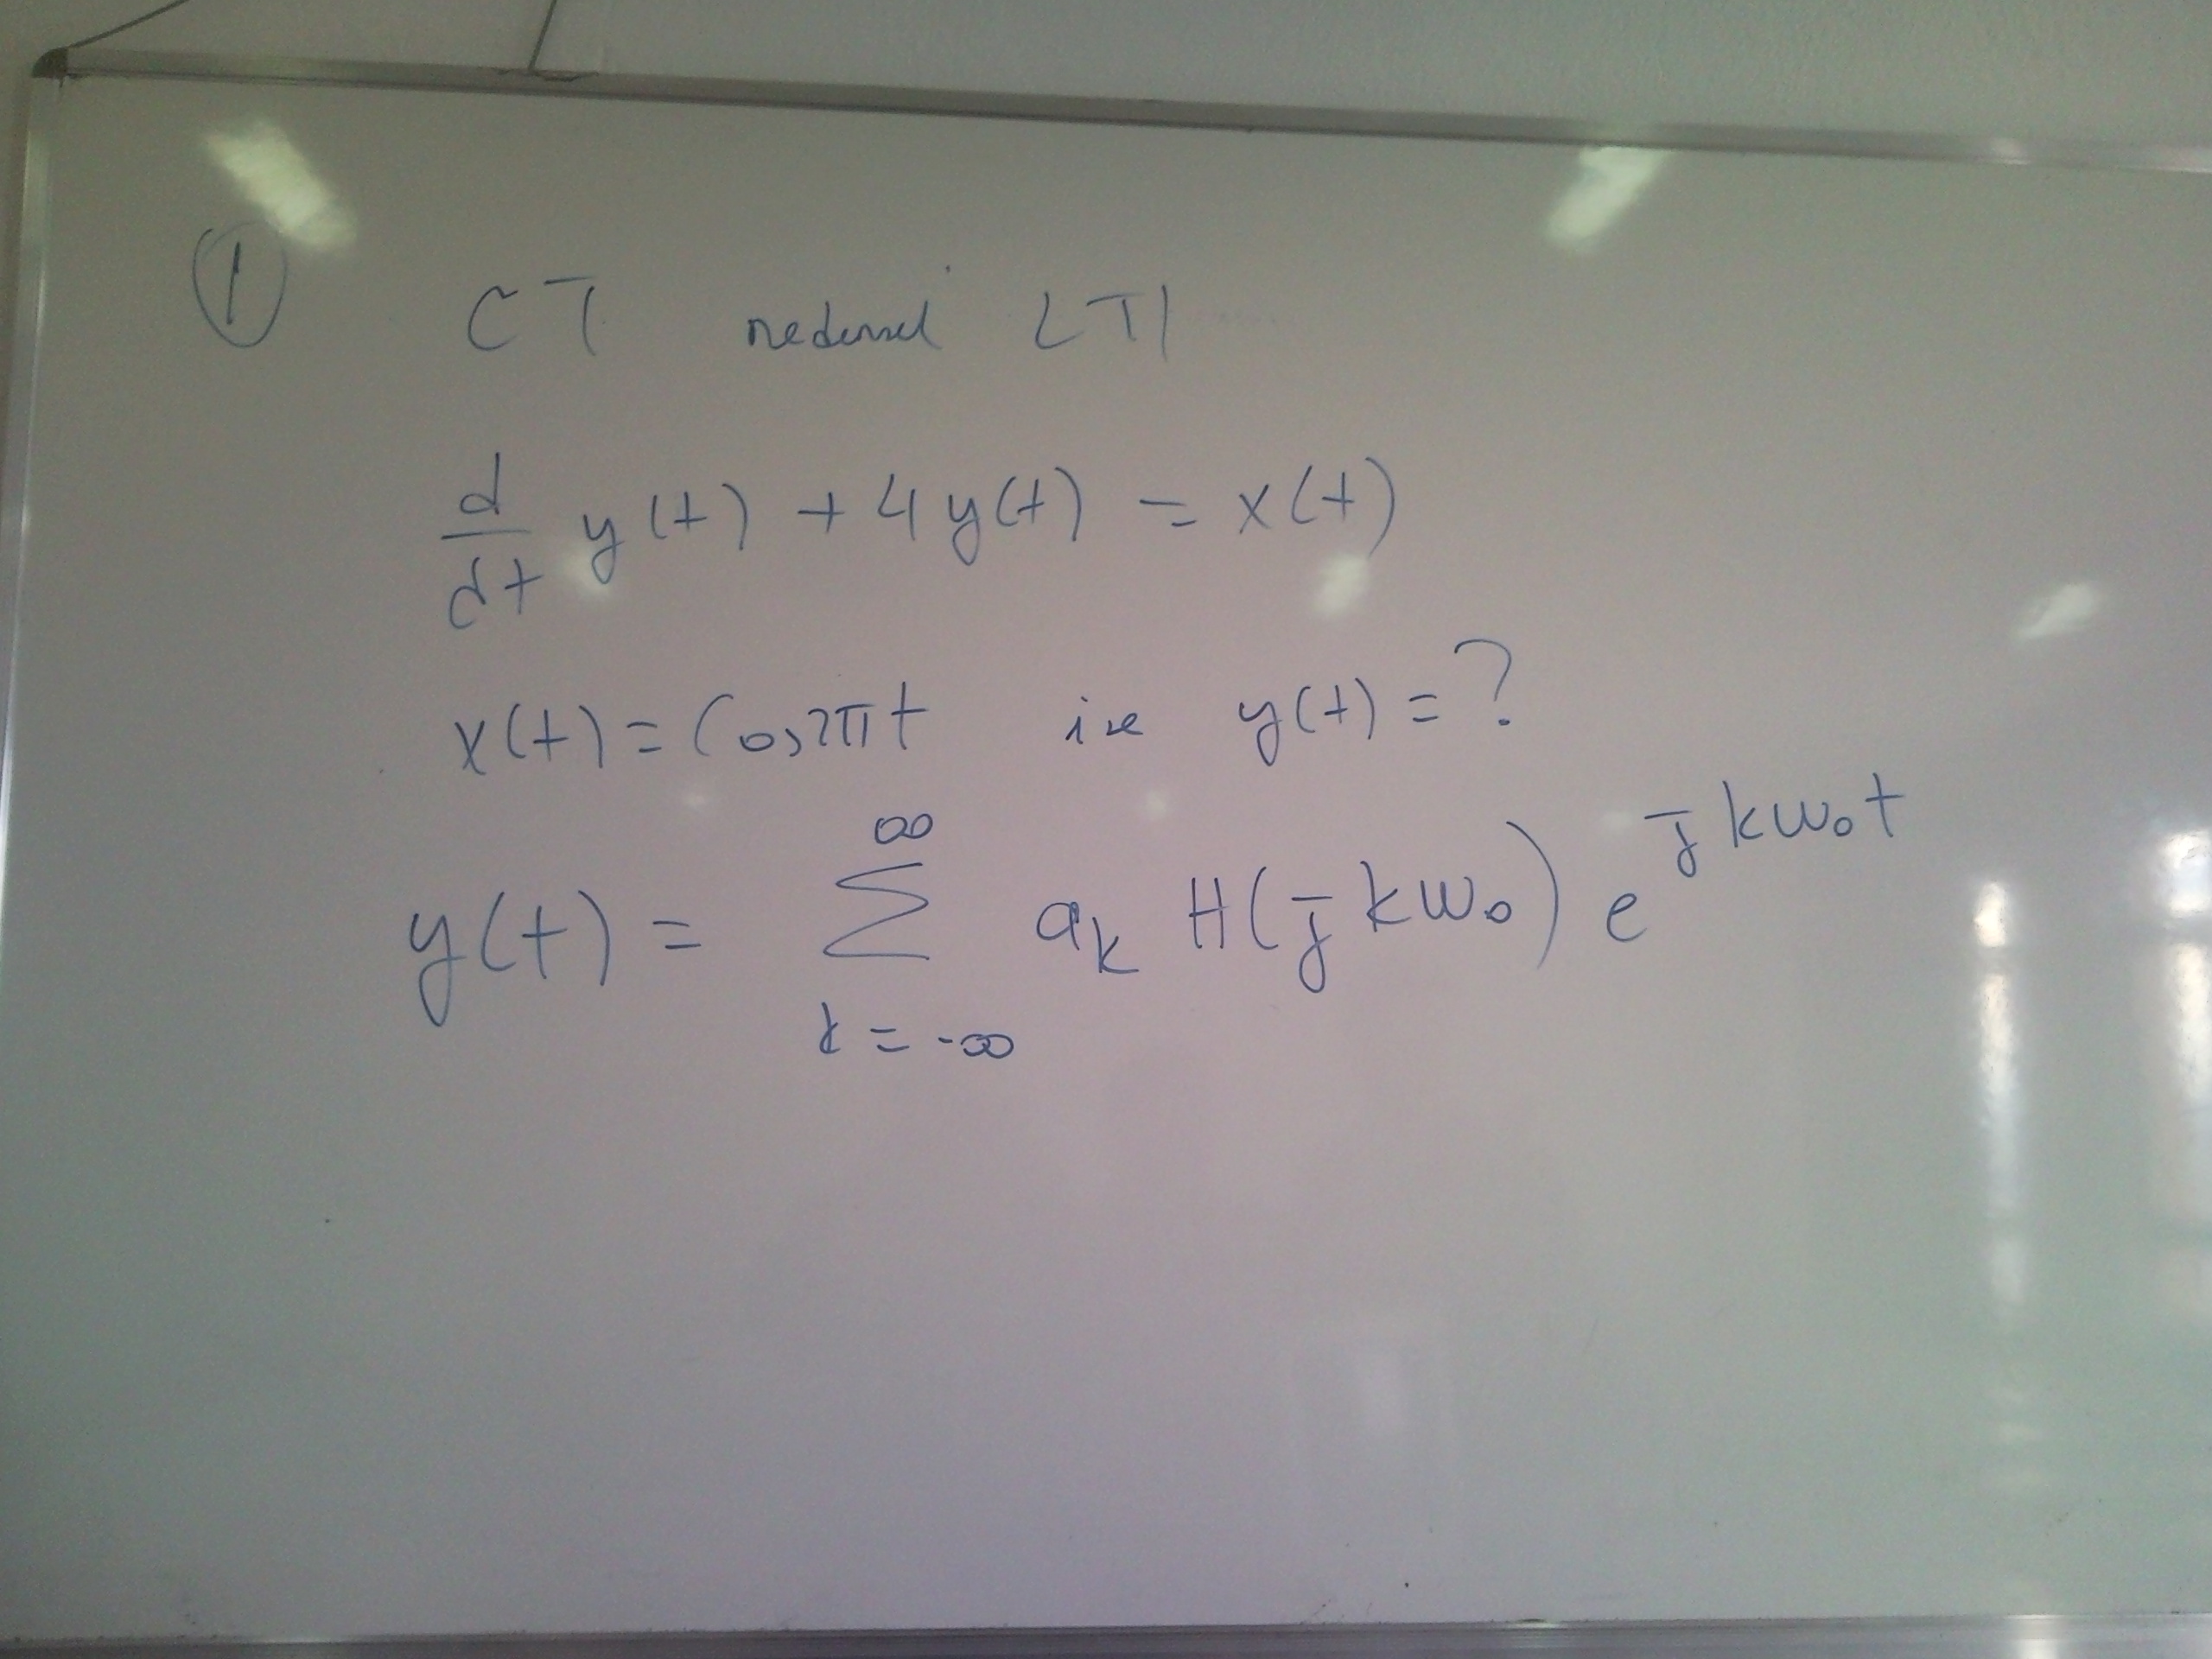 ① CT nedensel LTI
d/dt y(t) + 4y(t) = x(t)
x(t) = Cos2πt ise y(t) = ?
y(t) = ∑_{k=-∞}^{∞} a_k H(jkw₀) e^{jkw₀t}